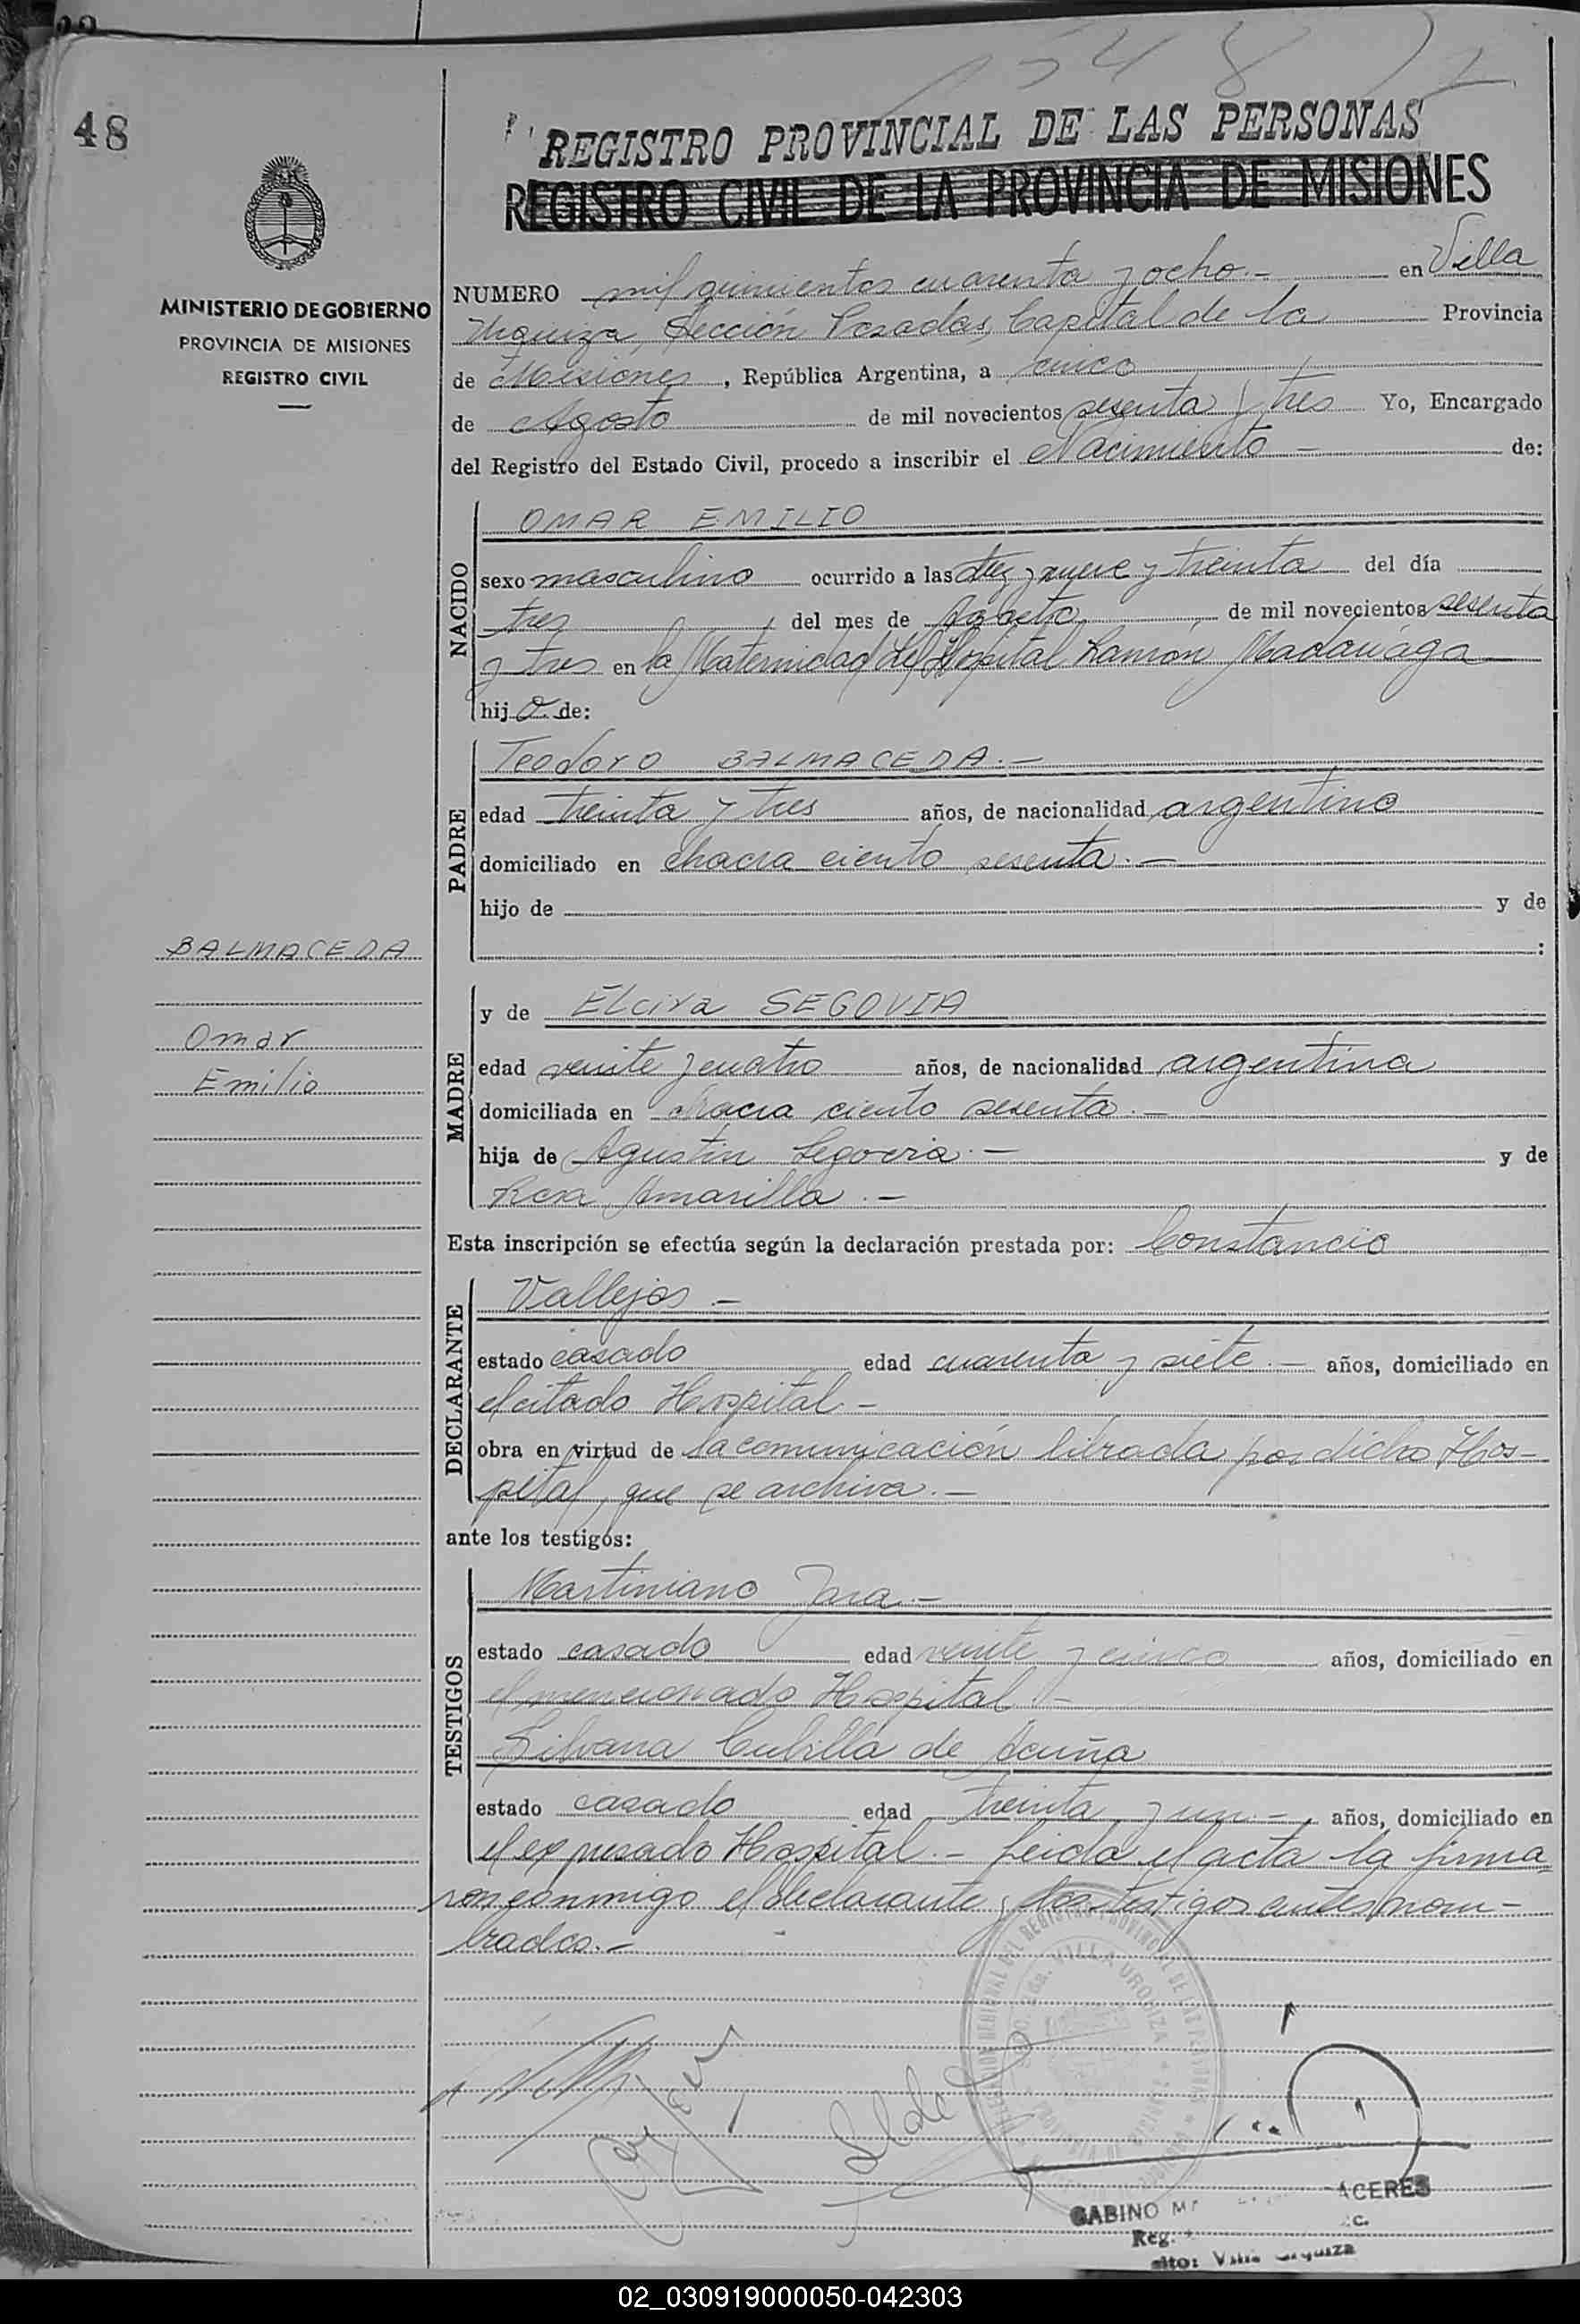 1548
48
REGISTRO PROVINCIAL DE LAS PERSONAS
REGISTRO CIVIL DE LA PROVINCIA DE MISIONES
MINISTERIO DE GOBIERNO
PROVINCIA DE MISIONES
REGISTRO CIVIL
NUMERO mil quinientos cuarenta y ocho.- en Villa
Urquiza, Sección Posadas, Capital de la Provincia
de Misiones, República Argentina, a cinco
de Agosto de mil novecientos sesenta y tres Yo, Encargado
del Registro del Estado Civil, procedo a inscribir el Nacimiento - de:
NACIDO
OMAR EMILIO
sexo masculino ocurrido a las diez y nueve y treinta del día
tres del mes de Agosto de mil novecientos sesenta
y tres en la Maternidad del Hospital Ramón Madariaga
hijo de:
PADRE
Teodoro BALMACEDA.-
edad treinta y tres años, de nacionalidad argentino
domiciliado en chacra ciento sesenta.-
hijo de y de
:
BALMACEDA
Omar
Emilio
MADRE
y de Elcira SEGOVIA
edad veinte y cuatro años, de nacionalidad argentina
domiciliada en chacra ciento sesenta.-
hija de Agustin Segovia.- y de
Rosa Amarilla.-
Esta inscripción se efectúa según la declaración prestada por: Constancio
DECLARANTE
Vallejos.-
estado casado edad cuarenta y siete.- años, domiciliado en
el citado Hospital.-
obra en virtud de la comunicación librada por dicho Hos-
pital, que se archiva.-
ante los testigos:
TESTIGOS
Martiniano Jara.-
estado casado edad veinte y cinco años, domiciliado en
el mencionado Hospital.-
Silvana Cubilla de Acuña
estado casado edad treinta y un.- años, domiciliado en
el expresado Hospital.- Leida el acta la firma
ron conmigo el declarante y los testigos antes nom-
brados.-
VILLA URQUIZA
GABINO
Reg.
02_030919000050-042303